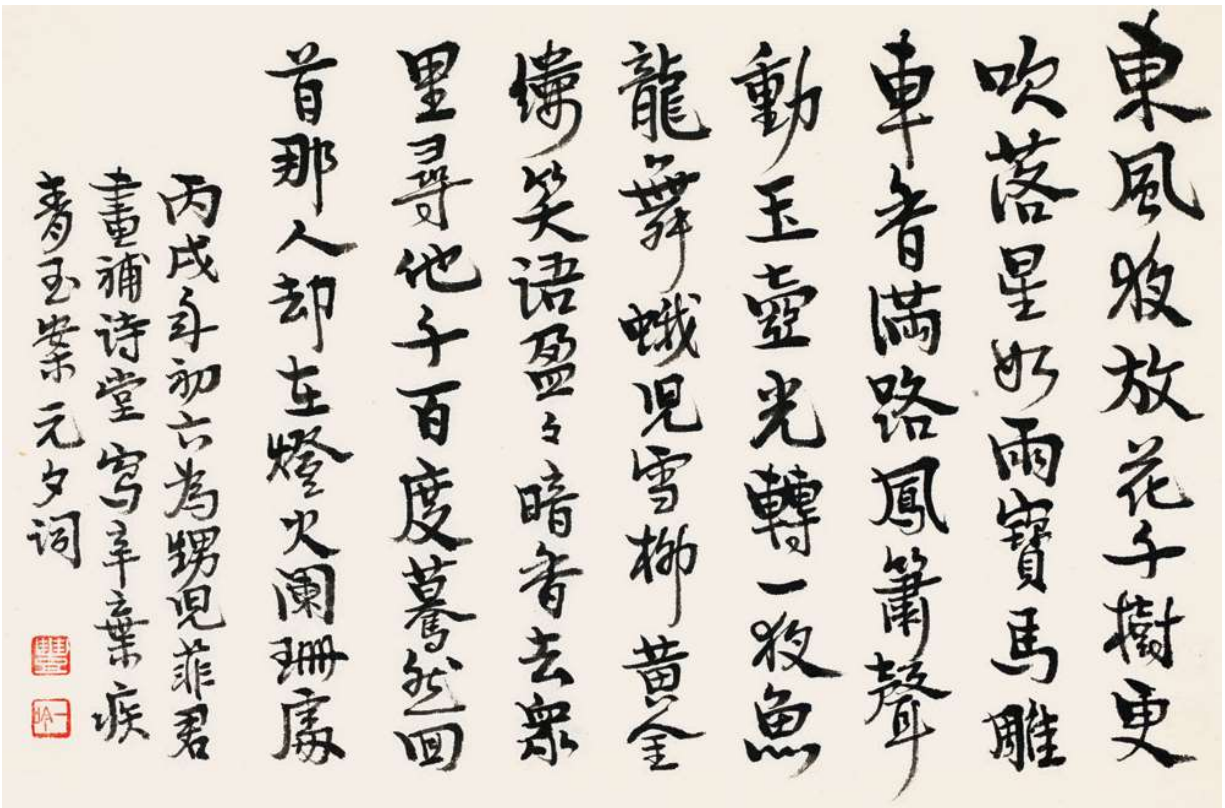 東風夜放花千樹更
吹落星如雨寶馬雕
車香滿路鳳簫聲
動玉壺光轉一夜魚
龍舞蛾児雪柳黄金
縷笑语盈々暗香去衆
里尋他千百度驀然回
首那人却在燈火闌珊處
丙戌年初六為甥児菲君
畫補诗堂寫辛棄疾
青玉案元夕词
豐
一吟